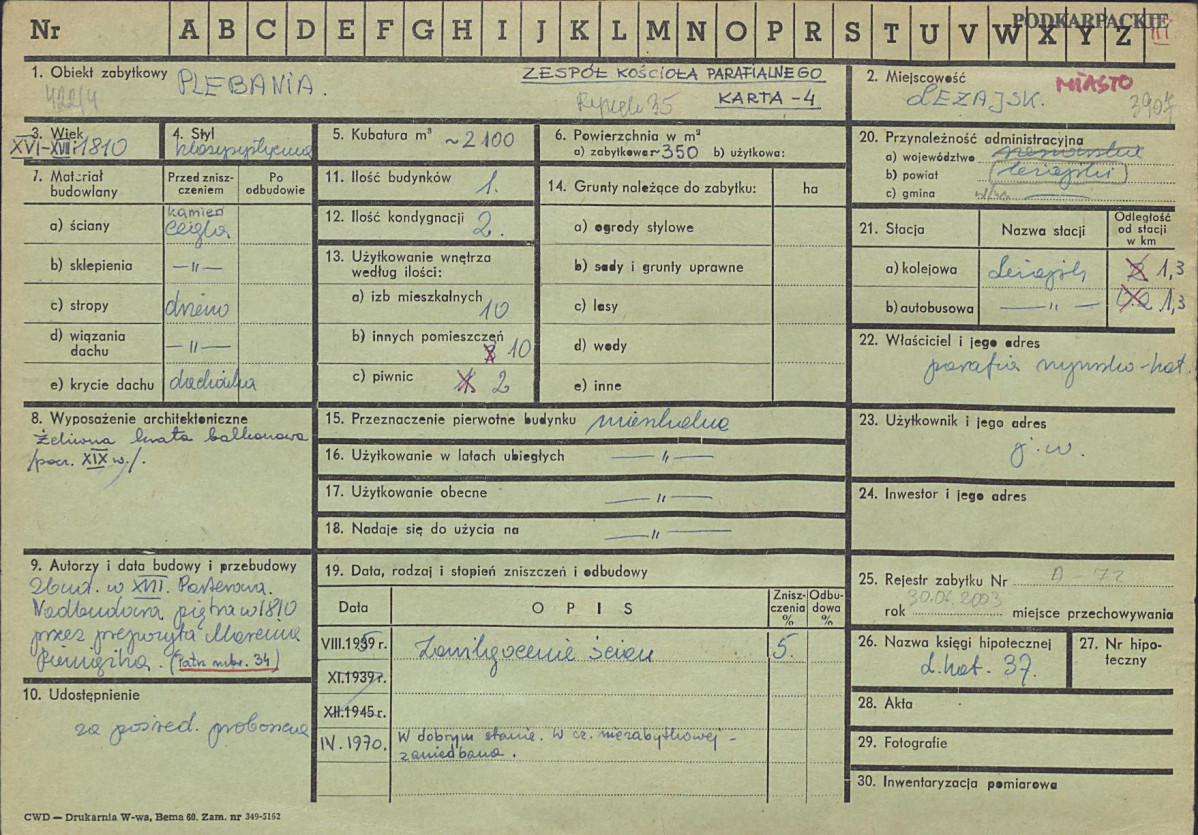 Nr A B C D E F G H I J K L M N O P R S T U V W X Y Z
PODKARPACKIE
III
1. Obiekt zabytkowy PLEBANIA.
422/4
ZESPÓŁ KOŚCIOŁA PARAFIALNEGO
KARTA - 4
35
2. Miejscowość
MIASTO
LEŻAJSK.
3907
3. Wiek
XVI-XVII-1810
4. Styl
klasycystyczna
5. Kubatura m³
~2100
6. Powierzchnia w m²
a) zabytkowa ~350 b) użytkowa:
7. Materiał budowlany
Przed zniszczeniem
Po odbudowie
a) ściany
kamień
cegła
b) sklepienia — " —
c) stropy drewno
d) wiązania dachu — " —
e) krycie dachu dachówka
8. Wyposażenie architektoniczne
Żeliwna krata balkonowa
/pocz. XIX w./.
9. Autorzy i data budowy i przebudowy
Zbud. w XVII. Parterowa.
Nadbudowa piętra w 1810
przez prepozyta Marcina
Pieniążka. (Patrz nmbr. 34)
10. Udostępnienie
za pośred. proboszcza
11. Ilość budynków 1.
12. Ilość kondygnacji 2.
13. Użytkowanie wnętrza
według ilości:
a) izb mieszkalnych 10
b) innych pomieszczeń 8 10
c) piwnic 2
14. Grunty należące do zabytku: ha
a) ogrody stylowe
b) sady i grunty uprawne
c) lasy
d) wody
e) inne
15. Przeznaczenie pierwotne budynku mieszkalna
16. Użytkowanie w latach ubiegłych — " —
17. Użytkowanie obecne — " —
18. Nadaje się do użycia na — " —
19. Data, rodzaj i stopień zniszczeń i odbudowy
Data
OPIS
Zniszczenia %
Odbudowa %
VIII.1939 r. Zawilgocenie ścian 5.
XI.1939 r.
XII.1945 r.
IV.1970. W dobrym stanie. W cz. niezabytkowej -
zaniedbana.
20. Przynależność administracyjna
a) województwo rzeszowskie
b) powiat (leżajski)
c) gmina
21. Stacja
Nazwa stacji
Odległość
od stacji
w km
a) kolejowa Leżajsk 2 1,3
b) autobusowa — " — 0.2 1,3
22. Właściciel i jego adres
parafia rzymsko-kat.
23. Użytkownik i jego adres
j.w.
24. Inwestor i jego adres
25. Rejestr zabytku Nr A-72
rok 30.06.2003 miejsce przechowywania
26. Nazwa księgi hipotecznej
L.kat. 37.
27. Nr hipoteczny
28. Akta
29. Fotografie
30. Inwentaryzacja pomiarowa
CWD — Drukarnia W-wa, Bema 60. Zam. nr 349-5162